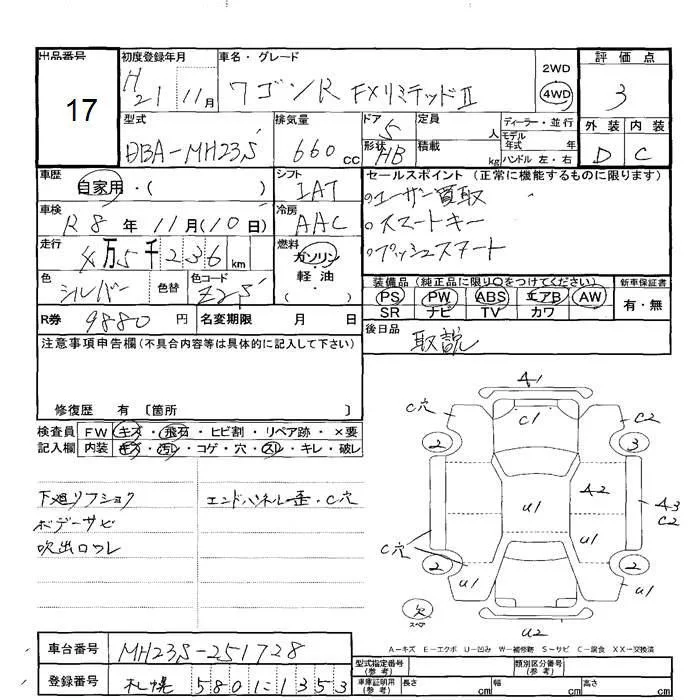 出品番号 17
初度登録年月 H21 11月
車名・グレード ワゴンR FXリミテッドⅡ
2WD
4WD
評価点 3
外装 D 内装 C
型式 DBA-MH23S
排気量 660 cc
ドア 5
形状 HB
定員 人
積載 kg
ディーラー・並行
モデル年式 年
ハンドル 左・右
車歴 自家用・( )
シフト IAT
セールスポイント (正常に機能するものに限ります)
・ユーザー買取
・スマートキー
・プッシュスタート
車検 R8年 11月(10日)
冷房 AAC
走行 4万5千236 km
燃料 ガソリン・軽油・( )
色 シルバー 色替
色コード Z2S
装備品 (純正品に限り○をつけてください)
PS PW ABS エアB AW
SR ナビ TV カワ
新車保証書 有・無
R券 9880円 名変期限 月 日
後日品 取説
注意事項申告欄 (不具合内容等は具体的に記入して下さい)
修復歴 有 〔箇所 〕
検査員記入欄
FW キズ・飛石・ヒビ割・リペア跡・×要
内装 キズ・汚レ・コゲ・穴・スレ・キレ・破レ
下廻リフショク エンドパネル歪・C穴
ボデーサビ
吹出ロワレ
A1
C穴 C1 C2
2 3
A2
U1 A3
C2
C穴 U1
2 2
U1 U1
欠
スペア
U2
A-キズ E-エクボ U-凹み W-補修跡 S-サビ C-腐食 XX-交換済
車台番号 MH23S-251728
登録番号 札幌 580 に 1353
型式指定番号(参考) 類別区分番号(参考)
車庫証明用(参考) 長さ cm 幅 cm 高さ cm